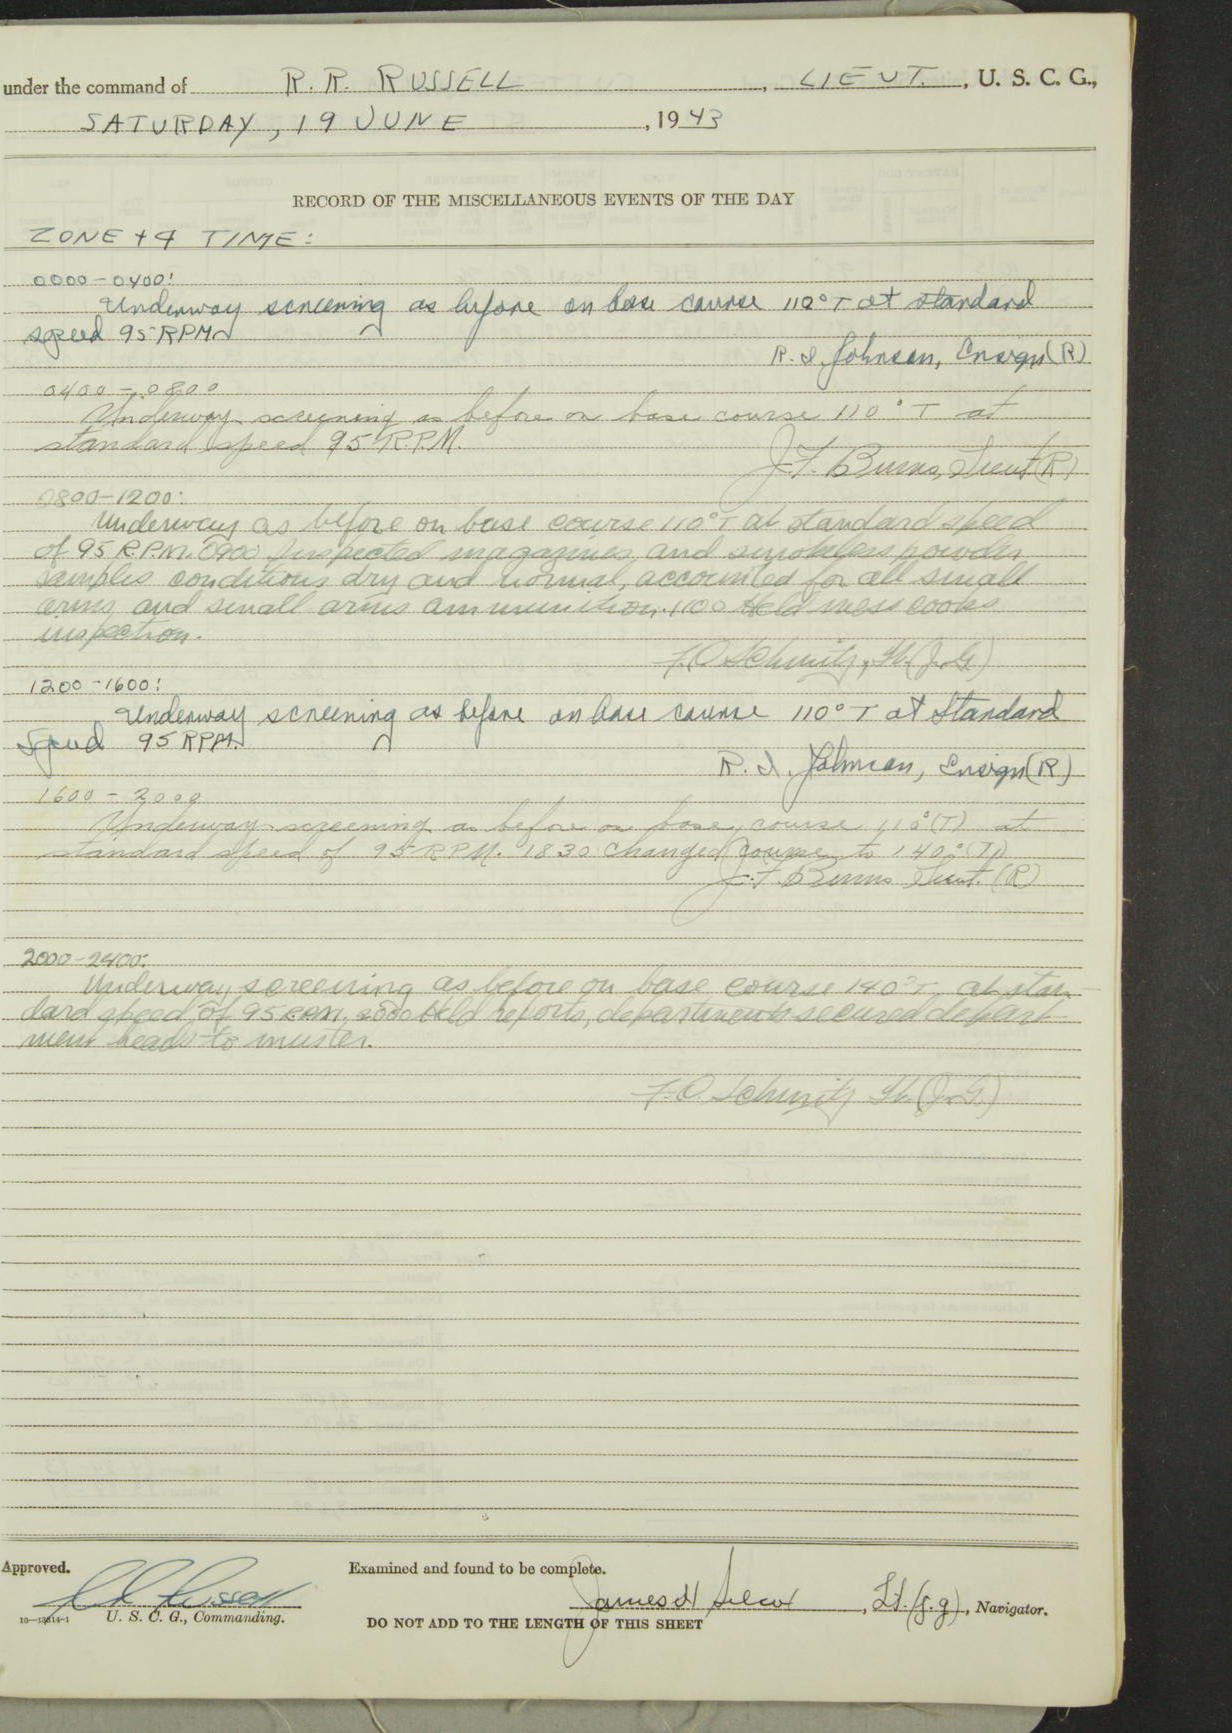 under the command of R. R. RUSSELL, LIEUT., U. S. C. G.,
SATURDAY, 19 JUNE, 1943
RECORD OF THE MISCELLANEOUS EVENTS OF THE DAY
ZONE +4 TIME:
0000-0400:
Underway screening as before on base course 110°T at standard
speed 95 RPM
R. I. Johnson, Ensign (R)
0400-0800
Underway screening as before on base course 110°T at
standard speed 95 R.P.M.
J. F. Burns, Lieut (R)
0800-1200:
Underway as before on base course 110°T at standard speed
of 95 R.P.M. 0900 Inspected magazines and smokeless powder
samples conditions dry and normal, accounted for all small
arms and small arms ammunition. 1100 Held mess cooks
inspection.
F. O. Schmitz, Lt. (J.G.)
1200-1600:
Underway screening as before on base course 110°T at standard
speed 95 RPM.
R. I. Johnson, Ensign (R)
1600-2000
Underway screening as before on base course 110°(T) at
standard speed of 95 RPM. 1830 changed course to 140°(T)
J. F. Burns Lieut. (R)
2000-2400:
Underway screening as before on base course 140°T, at stan-
dard speed of 95 R.P.M., 2000 Held reports, departments secured depart-
ment heads to muster.
F. O. Schmitz Lt. (J.G.)
Approved. Examined and found to be complete.
James H Silcox, Lt. (j.g), Navigator.
U. S. C. G., Commanding.
DO NOT ADD TO THE LENGTH OF THIS SHEET